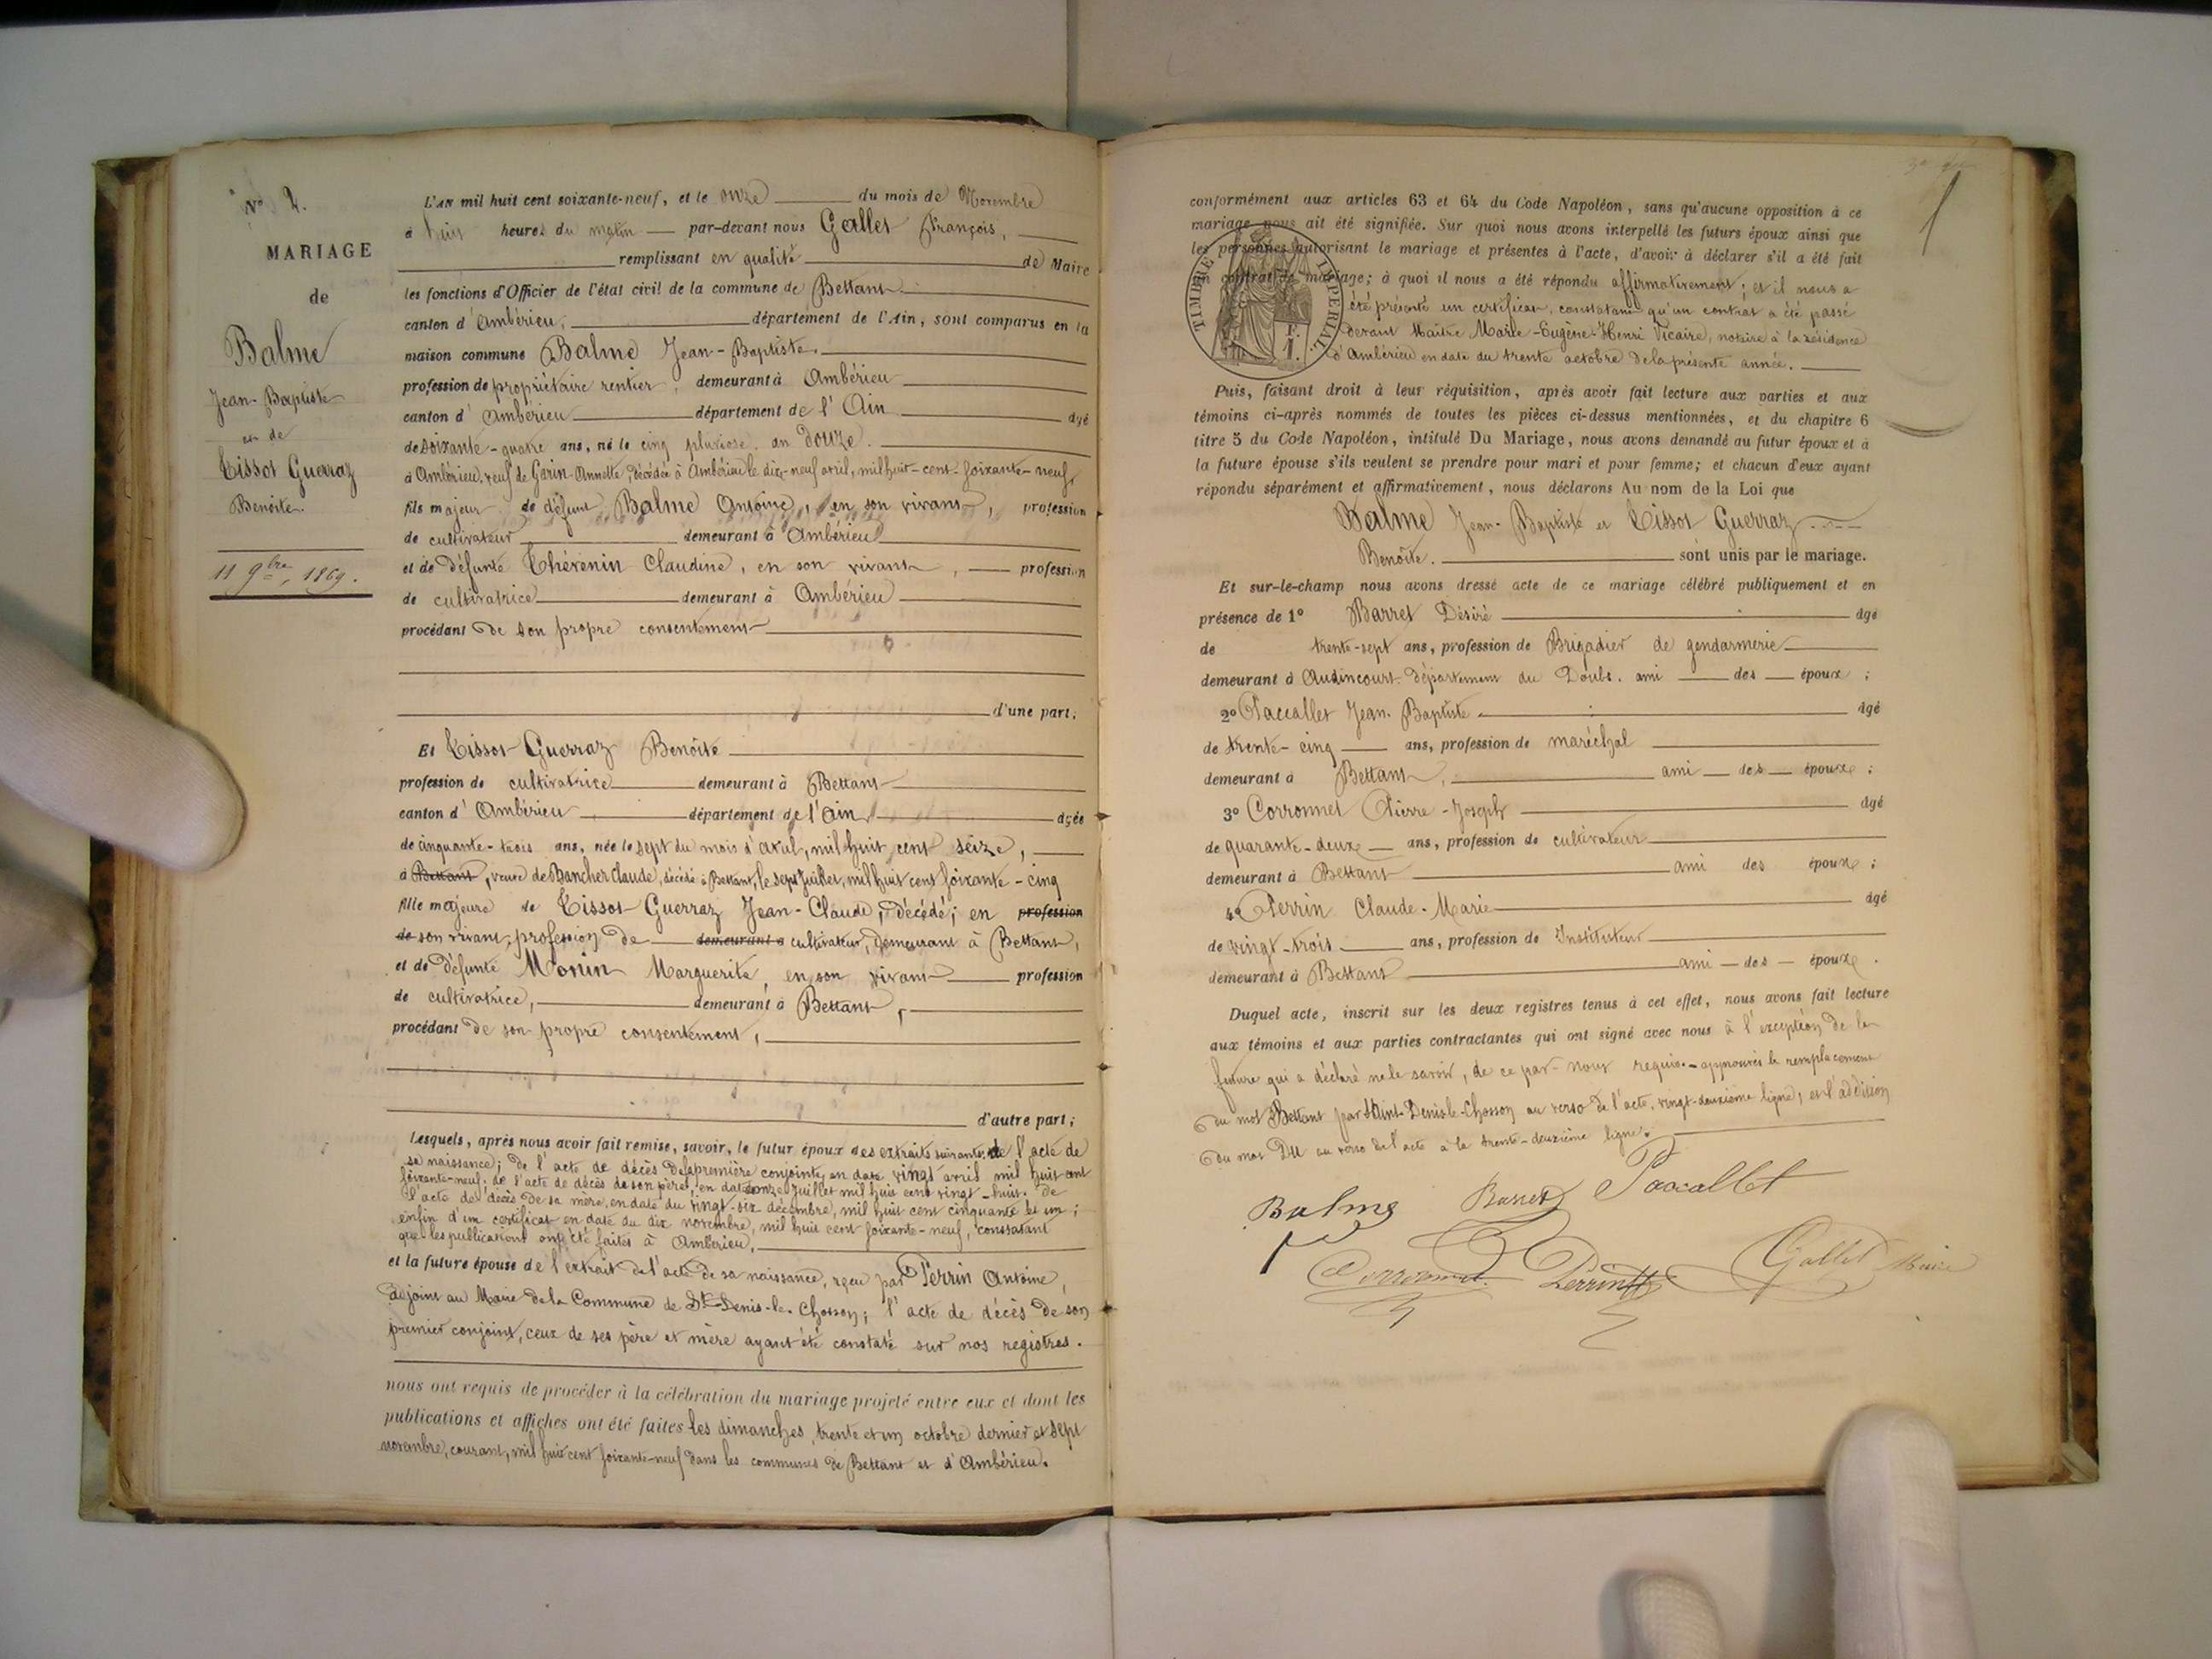 No 2.
MARIAGE
de
Balme
Jean-Baptiste
et de
Tissot Guerraz
Benoite.
11 9bre, 1869.
L'AN mil huit cent soixante-neuf, et le onze du mois de Novembre
à huit heures du matin par-devant nous Gallet François,
remplissant en qualité de Maire
les fonctions d'Officier de l'état civil de la commune de Bettant
canton d'Ambérieu, département de l'Ain, sont comparus en la
maison commune Balme Jean-Baptiste.
profession de propriétaire rentier, demeurant à Ambérieu
canton d'Ambérieu département de l'Ain âgé
de soixante-quatre ans, né le cinq pluviose an douze.
à Ambérieu, veuf de Garin Annette, décédée à Ambérieu le dix-neuf avril, mil huit-cent-soixante-neuf,
fils majeur de défunt Balme Antoine, en son vivant, profession
de cultivateur demeurant à Ambérieu
et de défunte Thévenin Claudine, en son vivant, profession
de cultivatrice demeurant à Ambérieu
procédant de son propre consentement
d'une part;
Et Tissot Guerraz Benoite
profession de cultivatrice demeurant à Bettant
canton d'Ambérieu département de l'Ain âgée
de cinquante-trois ans, née le sept du mois d'avril, mil huit cent seize,
à Bettant, veuve de Bancher Claude, décédé à Bettant, le sept Juillet, mil huit cent soixante-cinq
fille majeure de Tissot Guerraz Jean-Claude, décédé; en profession
de son vivant, profession de demeurant à cultivateur, demeurant à Bettant,
et de défunte Monin Marguerite, en son vivant profession
de cultivatrice, demeurant à Bettant,
procédant de son propre consentement,
d'autre part;
Lesquels, après nous avoir fait remise, savoir, le futur époux des extraits suivants: de l'acte de
sa naissance; de l'acte de décès de sa première conjointe, en date vingt avril mil huit cent
soixante-neuf; de l'acte de décès de son père, en date onze Juillet mil huit cent vingt-huit. de
l'acte de décès de sa mère, en date du vingt-six décembre, mil huit cent cinquante et un;
enfin d'un certificat en date du dix novembre, mil huit cent soixante-neuf, constatant
que les publications ont été faites à Ambérieu,
et la future épouse de l'extrait de l'acte de sa naissance, reçu par Perrin Antoine,
adjoint au Maire de la Commune de St-Denis-le-Chosson; l'acte de décès de son
premier conjoint, ceux de ses père et mère ayant été constaté sur nos registres.
nous ont requis de procéder à la célébration du mariage projeté entre eux et dont les
publications et affiches ont été faites les dimanches, trente et un octobre dernier et sept
novembre, courant, mil huit cent soixante-neuf dans les communes de Bettant et d'Ambérieu.
conformément aux articles 63 et 64 du Code Napoléon, sans qu'aucune opposition à ce
mariage nous ait été signifiée. Sur quoi nous avons interpellé les futurs époux ainsi que
les personnes autorisant le mariage et présentes à l'acte, d'avoir à déclarer s'il a été fait
un contrat de mariage; à quoi il nous a été répondu affirmativement; et il nous a
été présenté un certificat, constatant qu'un contrat a été passé
devant Maître Marie-Eugène-Henri Vicaire, notaire à la résidence
d'Ambérieu en date du trente octobre de la présente année.
TIMBRE IMPÉRIAL.
1 F.
Puis, faisant droit à leur réquisition, après avoir fait lecture aux parties et aux
témoins ci-après nommés de toutes les pièces ci-dessus mentionnées, et du chapitre 6
titre 5 du Code Napoléon, intitulé Du Mariage, nous avons demandé au futur époux et à
la future épouse s'ils veulent se prendre pour mari et pour femme; et chacun d'eux ayant
répondu séparément et affirmativement, nous déclarons Au nom de la Loi que
Balme Jean-Baptiste et Tissot Guerraz
Benoîte. sont unis par le mariage.
Et sur-le-champ nous avons dressé acte de ce mariage célébré publiquement et en
présence de 1° Barret Désiré âgé
de trente-sept ans, profession de Brigadier de gendarmerie
demeurant à Audincourt département du Doubs. ami des époux;
2° Paccallet Jean-Baptiste âgé
de trente-cinq ans, profession de maréchal
demeurant à Bettant, ami des époux;
3° Corronnet Pierre-Joseph âgé
de quarante-deux ans, profession de cultivateur
demeurant à Bettant ami des époux;
4° Perrin Claude-Marie âgé
de vingt-trois ans, profession de Instituteur
demeurant à Bettant ami des époux.
Duquel acte, inscrit sur les deux registres tenus à cet effet, nous avons fait lecture
aux témoins et aux parties contractantes qui ont signé avec nous à l'exception de la
future qui a déclaré ne le savoir, de ce par nous requis. approuvés le remplacement
du mot Bettant par Saint-Denis-le-Chosson au verso de l'acte, vingt-deuxième ligne, et l'addition
du mot DU au verso de l'acte à la trente-deuxième ligne.
Balme Barret Paccallet
Corronnet Perrin Gallet Maire